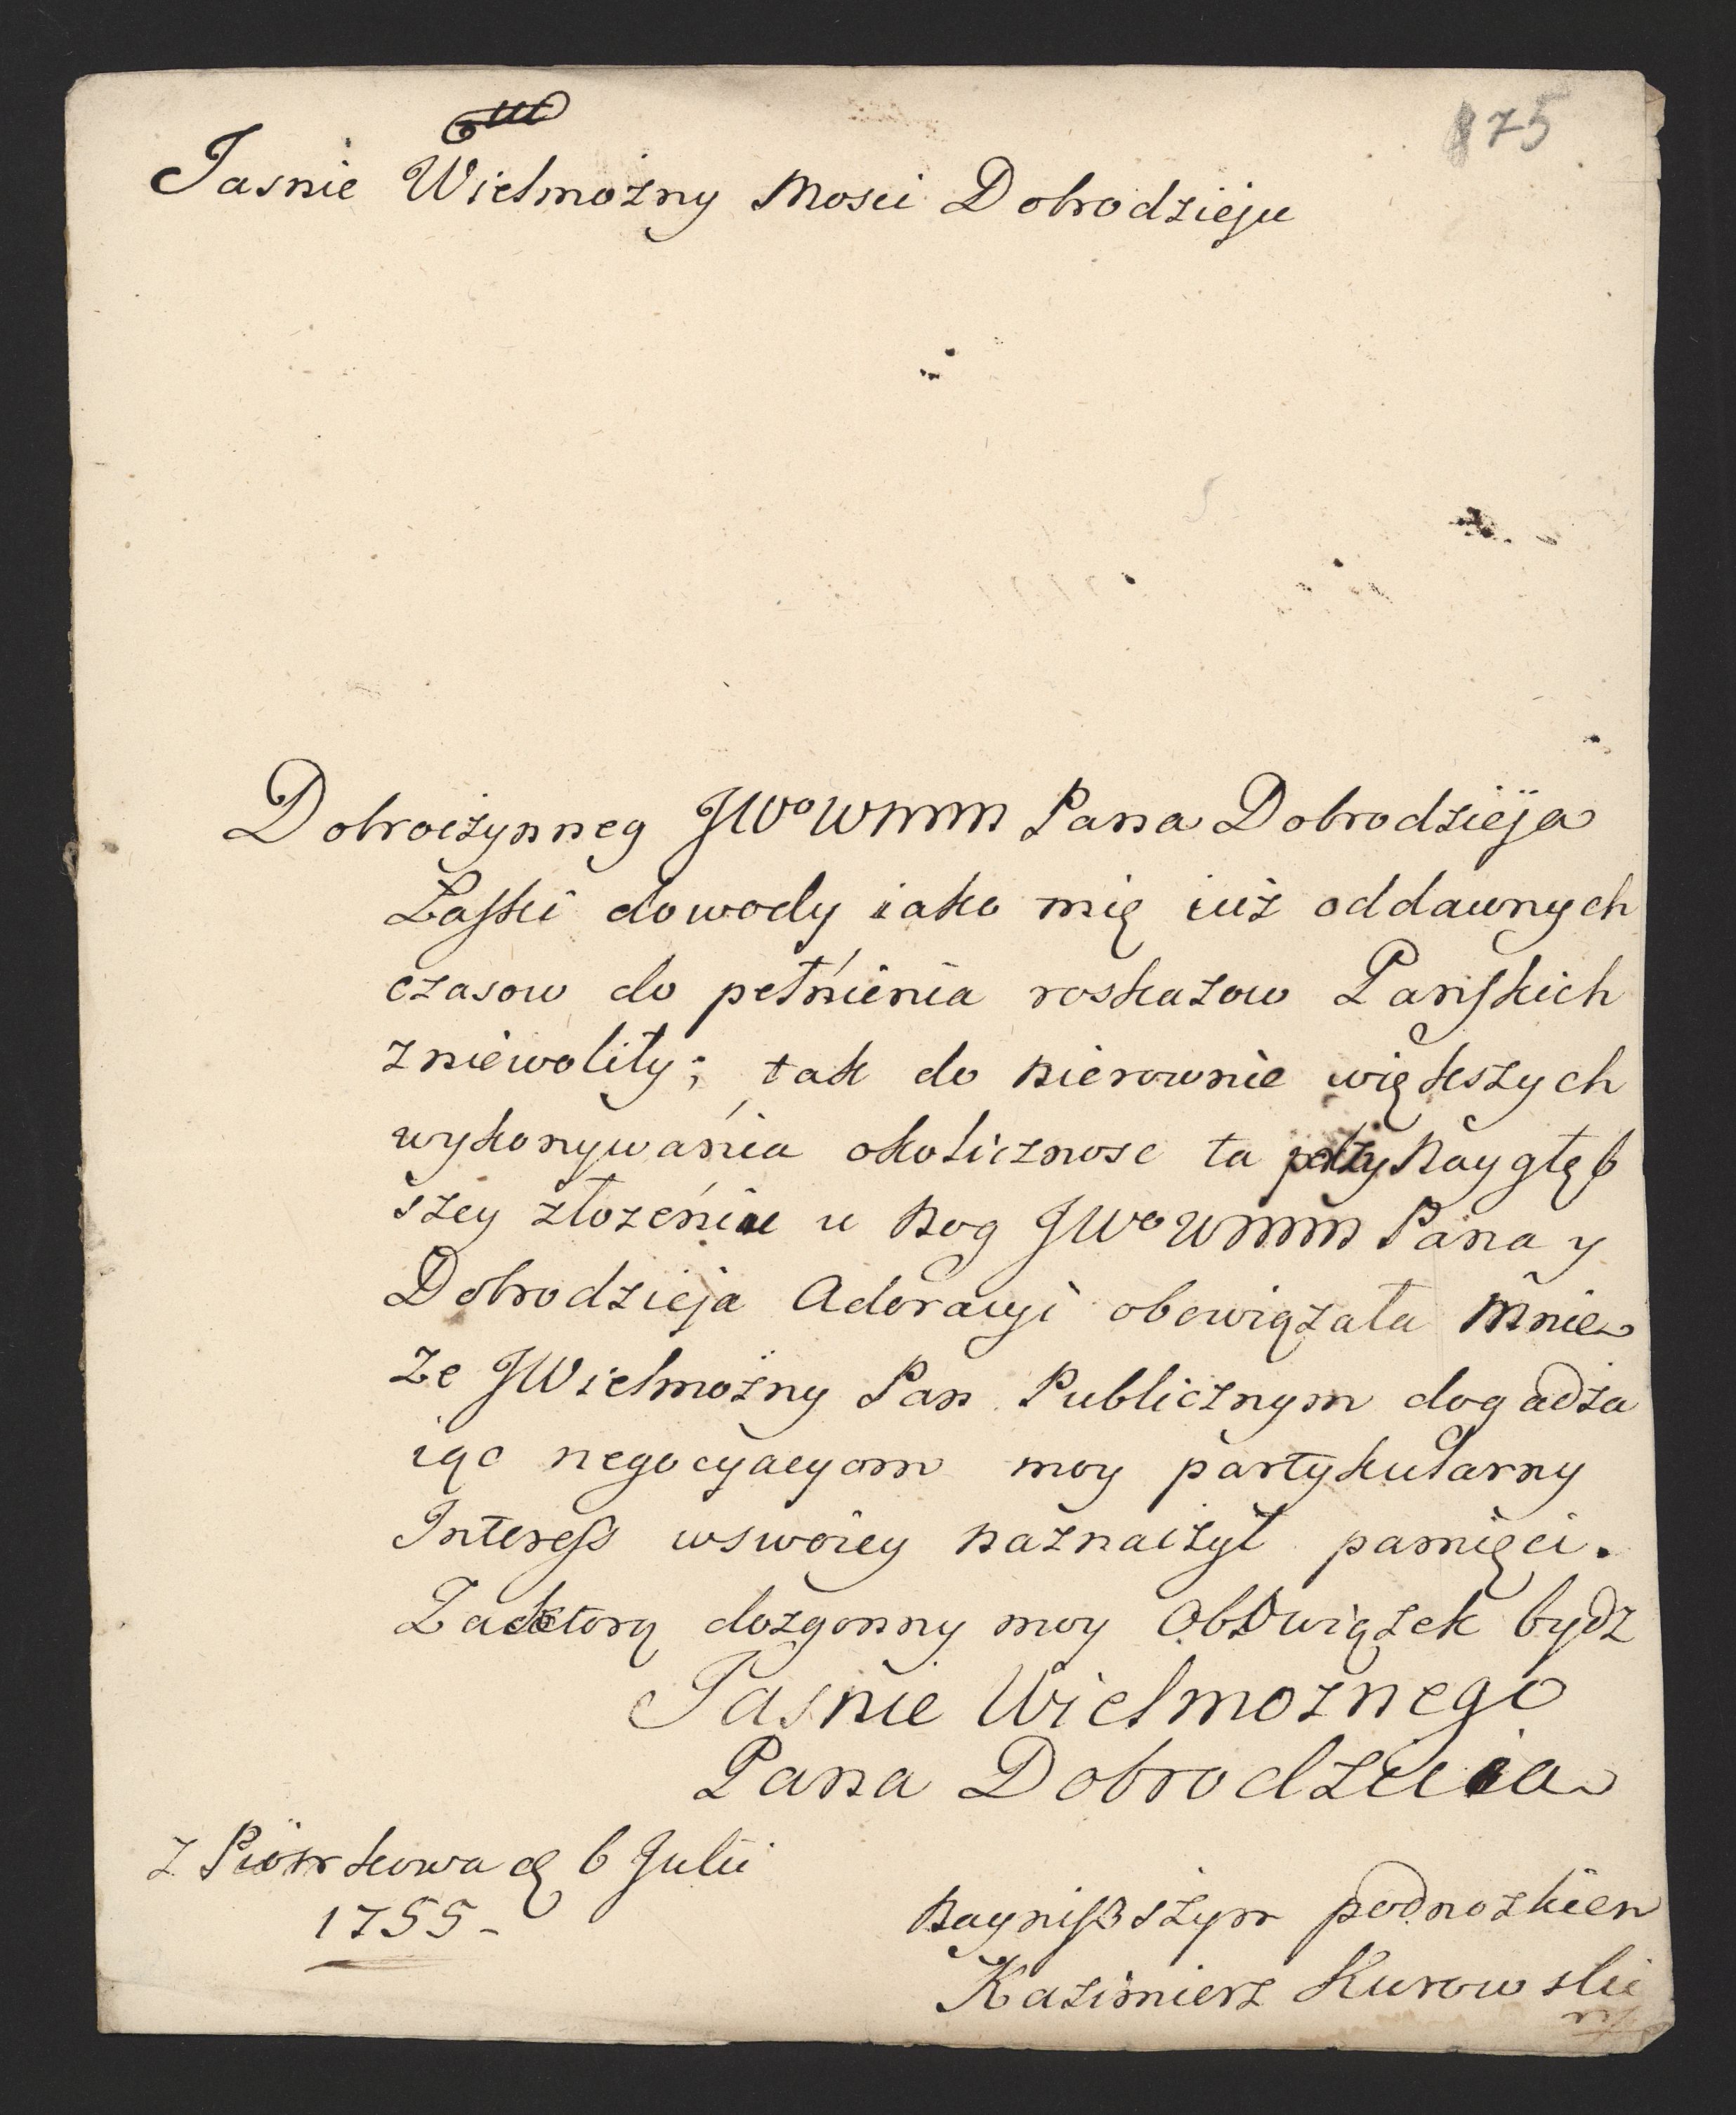 875
Jasnie Wielmożny Mosci Dobrodzieju
Dobroczynneg JWº WMM Pana Dobrodzieja
Łaski dowody iako mię iuż oddawnych
czasow do pełnienia roskazow Pańskich
zniewoliły; tak do nierownie większych
wykonywania okolicznosc ta przy Naygłęb
szey złozeniu u Nog JWº WMM Pana y
Dobrodzieja Adoracyi obowiązała mnie
że JWielmożny Pan Publicznym dogadza
iąc negocyacyom moy partykularny
Interess wswoiey naznaczył pamięci.
Zaktorą dozgonny moy Obowiązek bydz
Jasnie Wielmożnego
Pana Dobrodzieia
Z Piotrkowa d 6 Julii
1755-
Nayniższym podnozkiem
Kazimierz Kurowski